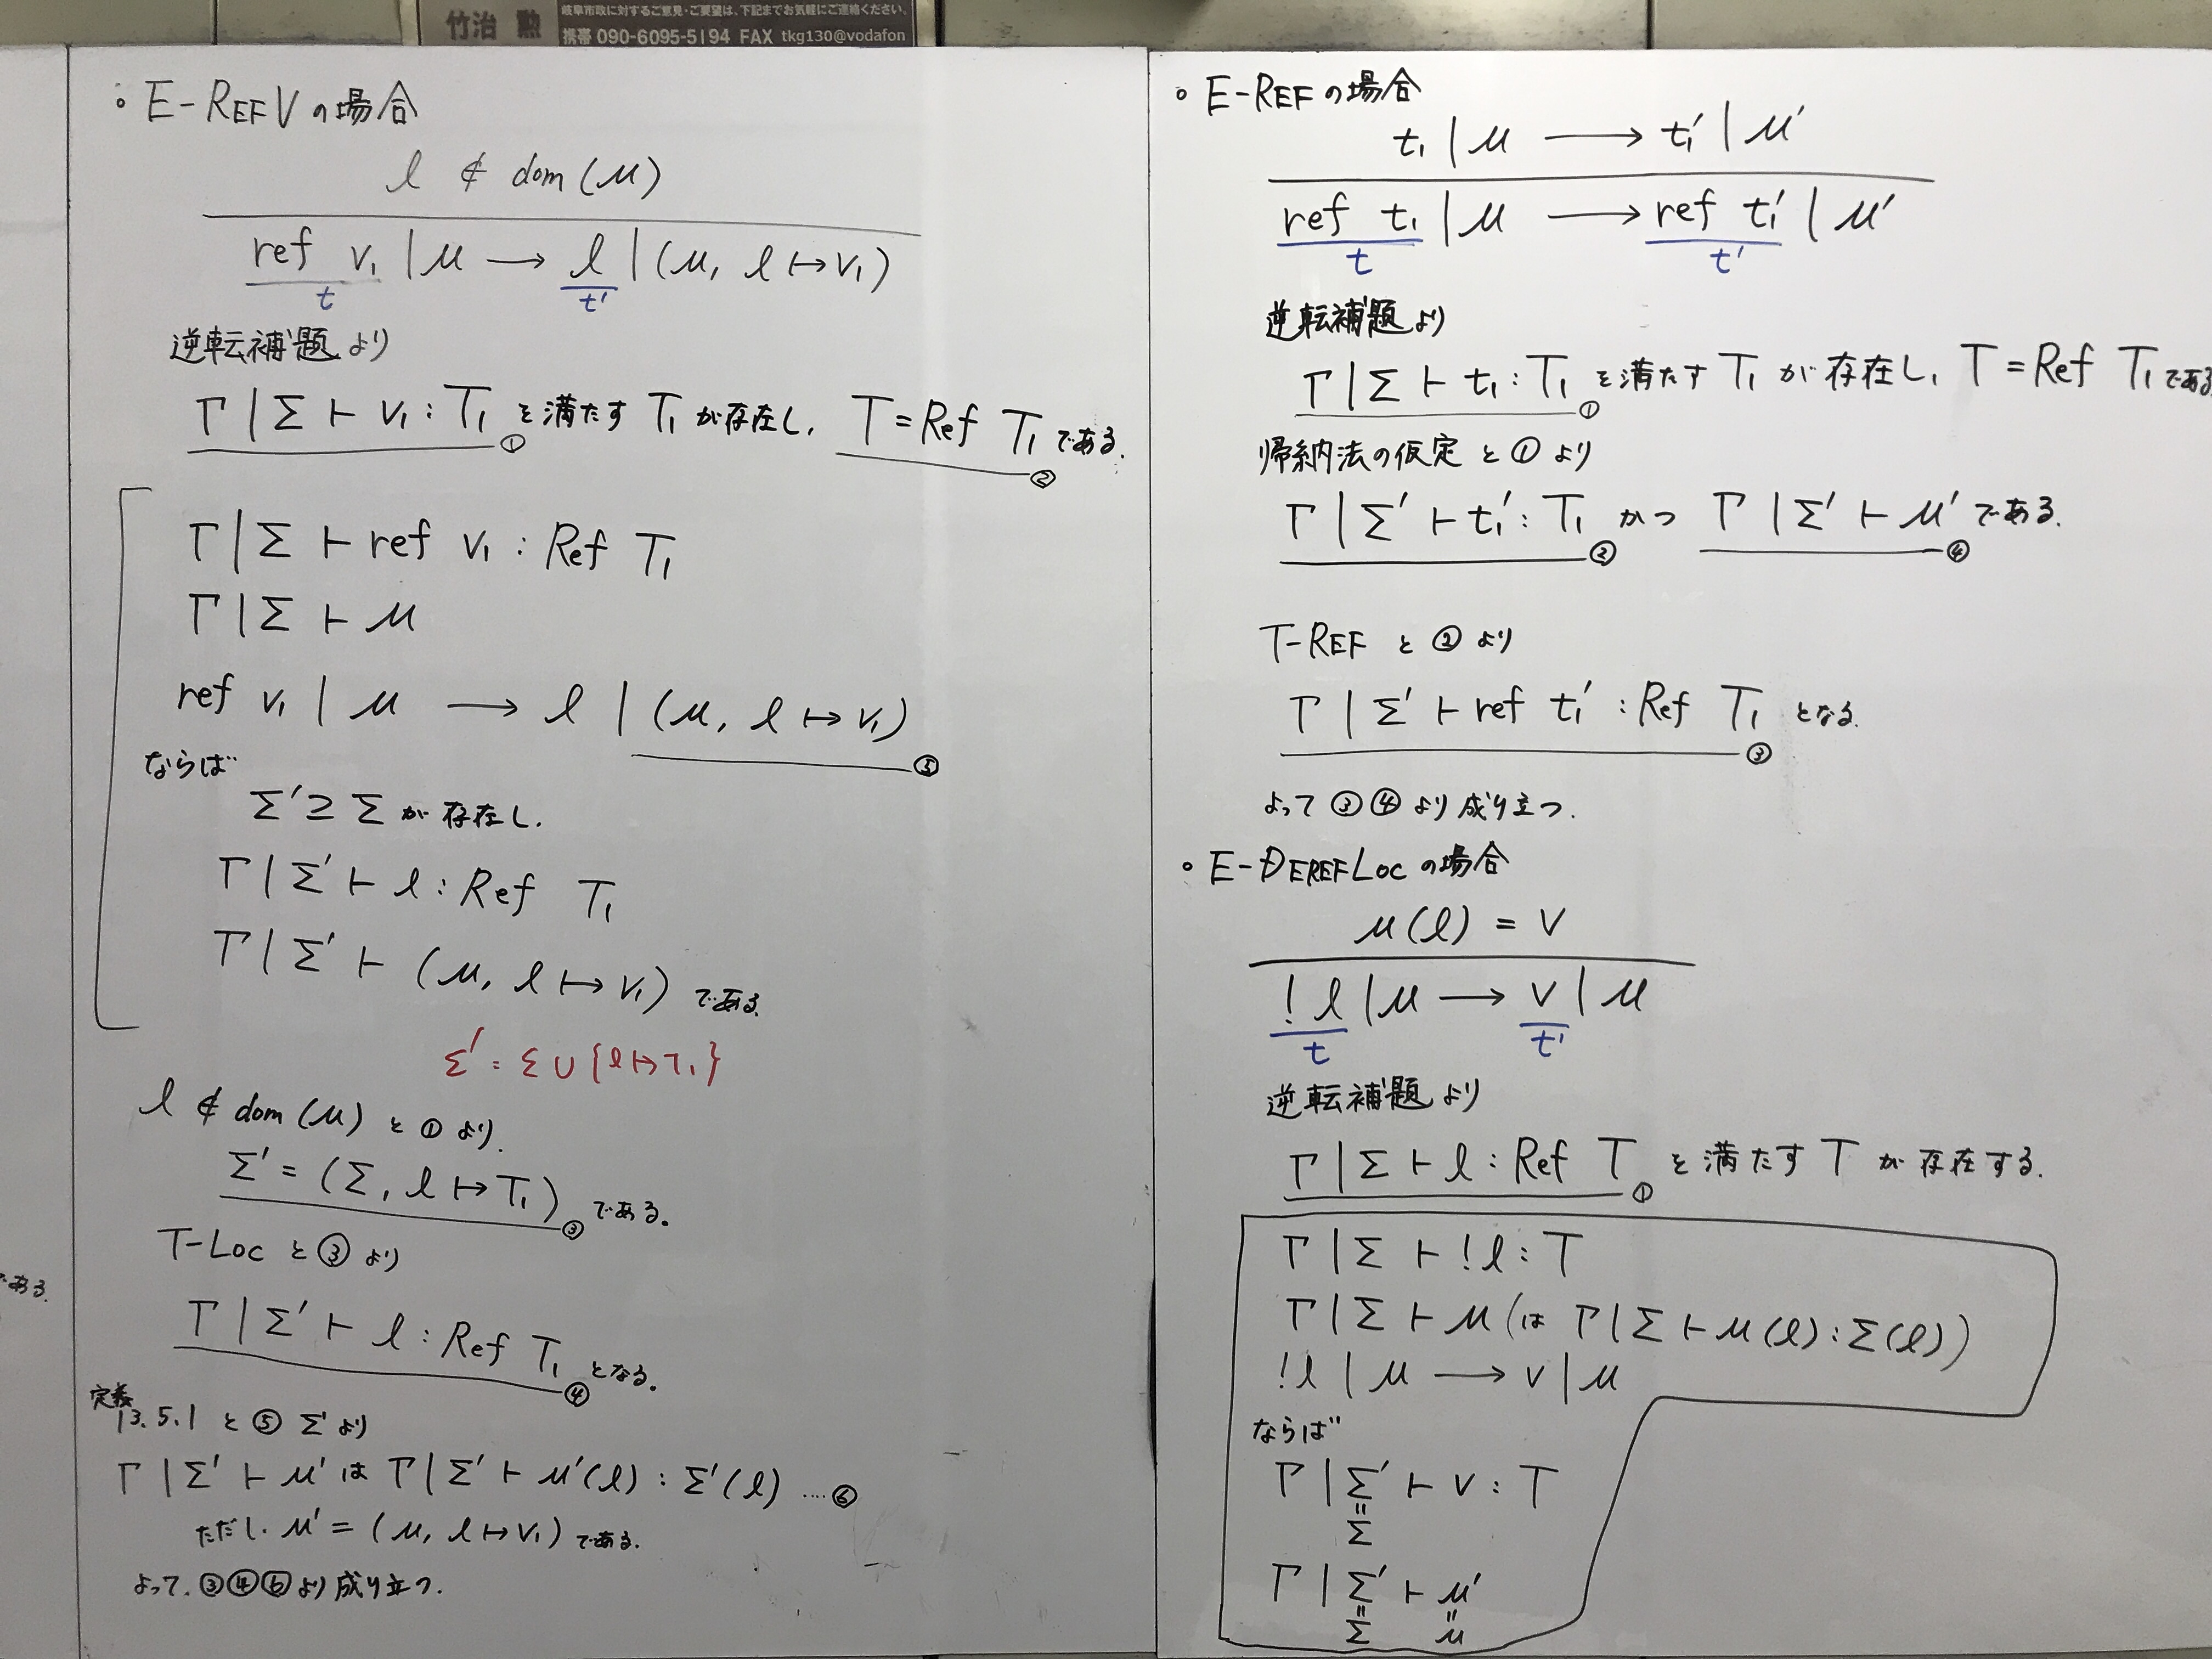 岐阜市政に対するご意見・ご要望は、下記までお気軽にご連絡ください。
竹治 勲
携帯 090-6095-5194 FAX tkg130@vodafon
。E-REFVの場合
l ∉ dom (μ)
ref v₁ | μ ⟶ l | (μ, l ↦ v₁)
t t'
逆転補題より
Γ | Σ ⊢ v₁ : T₁ ① を満たす T₁ が存在し, T = Ref T₁ ② である.
Γ | Σ ⊢ ref v₁ : Ref T₁
Γ | Σ ⊢ μ
ref v₁ | μ ⟶ l | (μ, l ↦ v₁) ⑤
ならば
Σ' ⊇ Σ が存在し.
Γ | Σ' ⊢ l : Ref T₁
Γ | Σ' ⊢ (μ, l ↦ v₁) である.
Σ' = Σ ∪ {l ↦ T₁}
l ∉ dom (μ) と ① より.
Σ' = (Σ, l ↦ T₁) ③ である。
T-LOC と ③ より
Γ | Σ' ⊢ l : Ref T₁ ④ となる。
定義
13.5.1 と ⑤ Σ' より
Γ | Σ' ⊢ μ' は Γ | Σ' ⊢ μ'(l) : Σ'(l) ....⑥
ただし. μ' = (μ, l ↦ v₁) である.
よって. ③④⑥より成り立つ.
である.
。E-REFの場合
t₁ | μ ⟶ t₁' | μ'
ref t₁ | μ ⟶ ref t₁' | μ'
t t'
逆転補題より
Γ | Σ ⊢ t₁ : T₁ ① を満たす T₁ が存在し, T = Ref T₁ である
帰納法の仮定 と ① より
Γ | Σ' ⊢ t₁' : T₁ ② かつ Γ | Σ' ⊢ μ' ④ である.
T-REF と ② より
Γ | Σ' ⊢ ref t₁' : Ref T₁ ③ となる.
よって ③④ より成り立つ.
。E-DEREFLOCの場合
μ(l) = v
! l | μ ⟶ v | μ
t t'
逆転補題より
Γ | Σ ⊢ l : Ref T ① を満たす T が存在する.
Γ | Σ ⊢ !l : T
Γ | Σ ⊢ μ (は Γ | Σ ⊢ μ(l) : Σ(l))
!l | μ ⟶ v | μ
ならば
Γ | Σ' ⊢ v : T
=
Σ
Γ | Σ' ⊢ μ'
= =
Σ μ